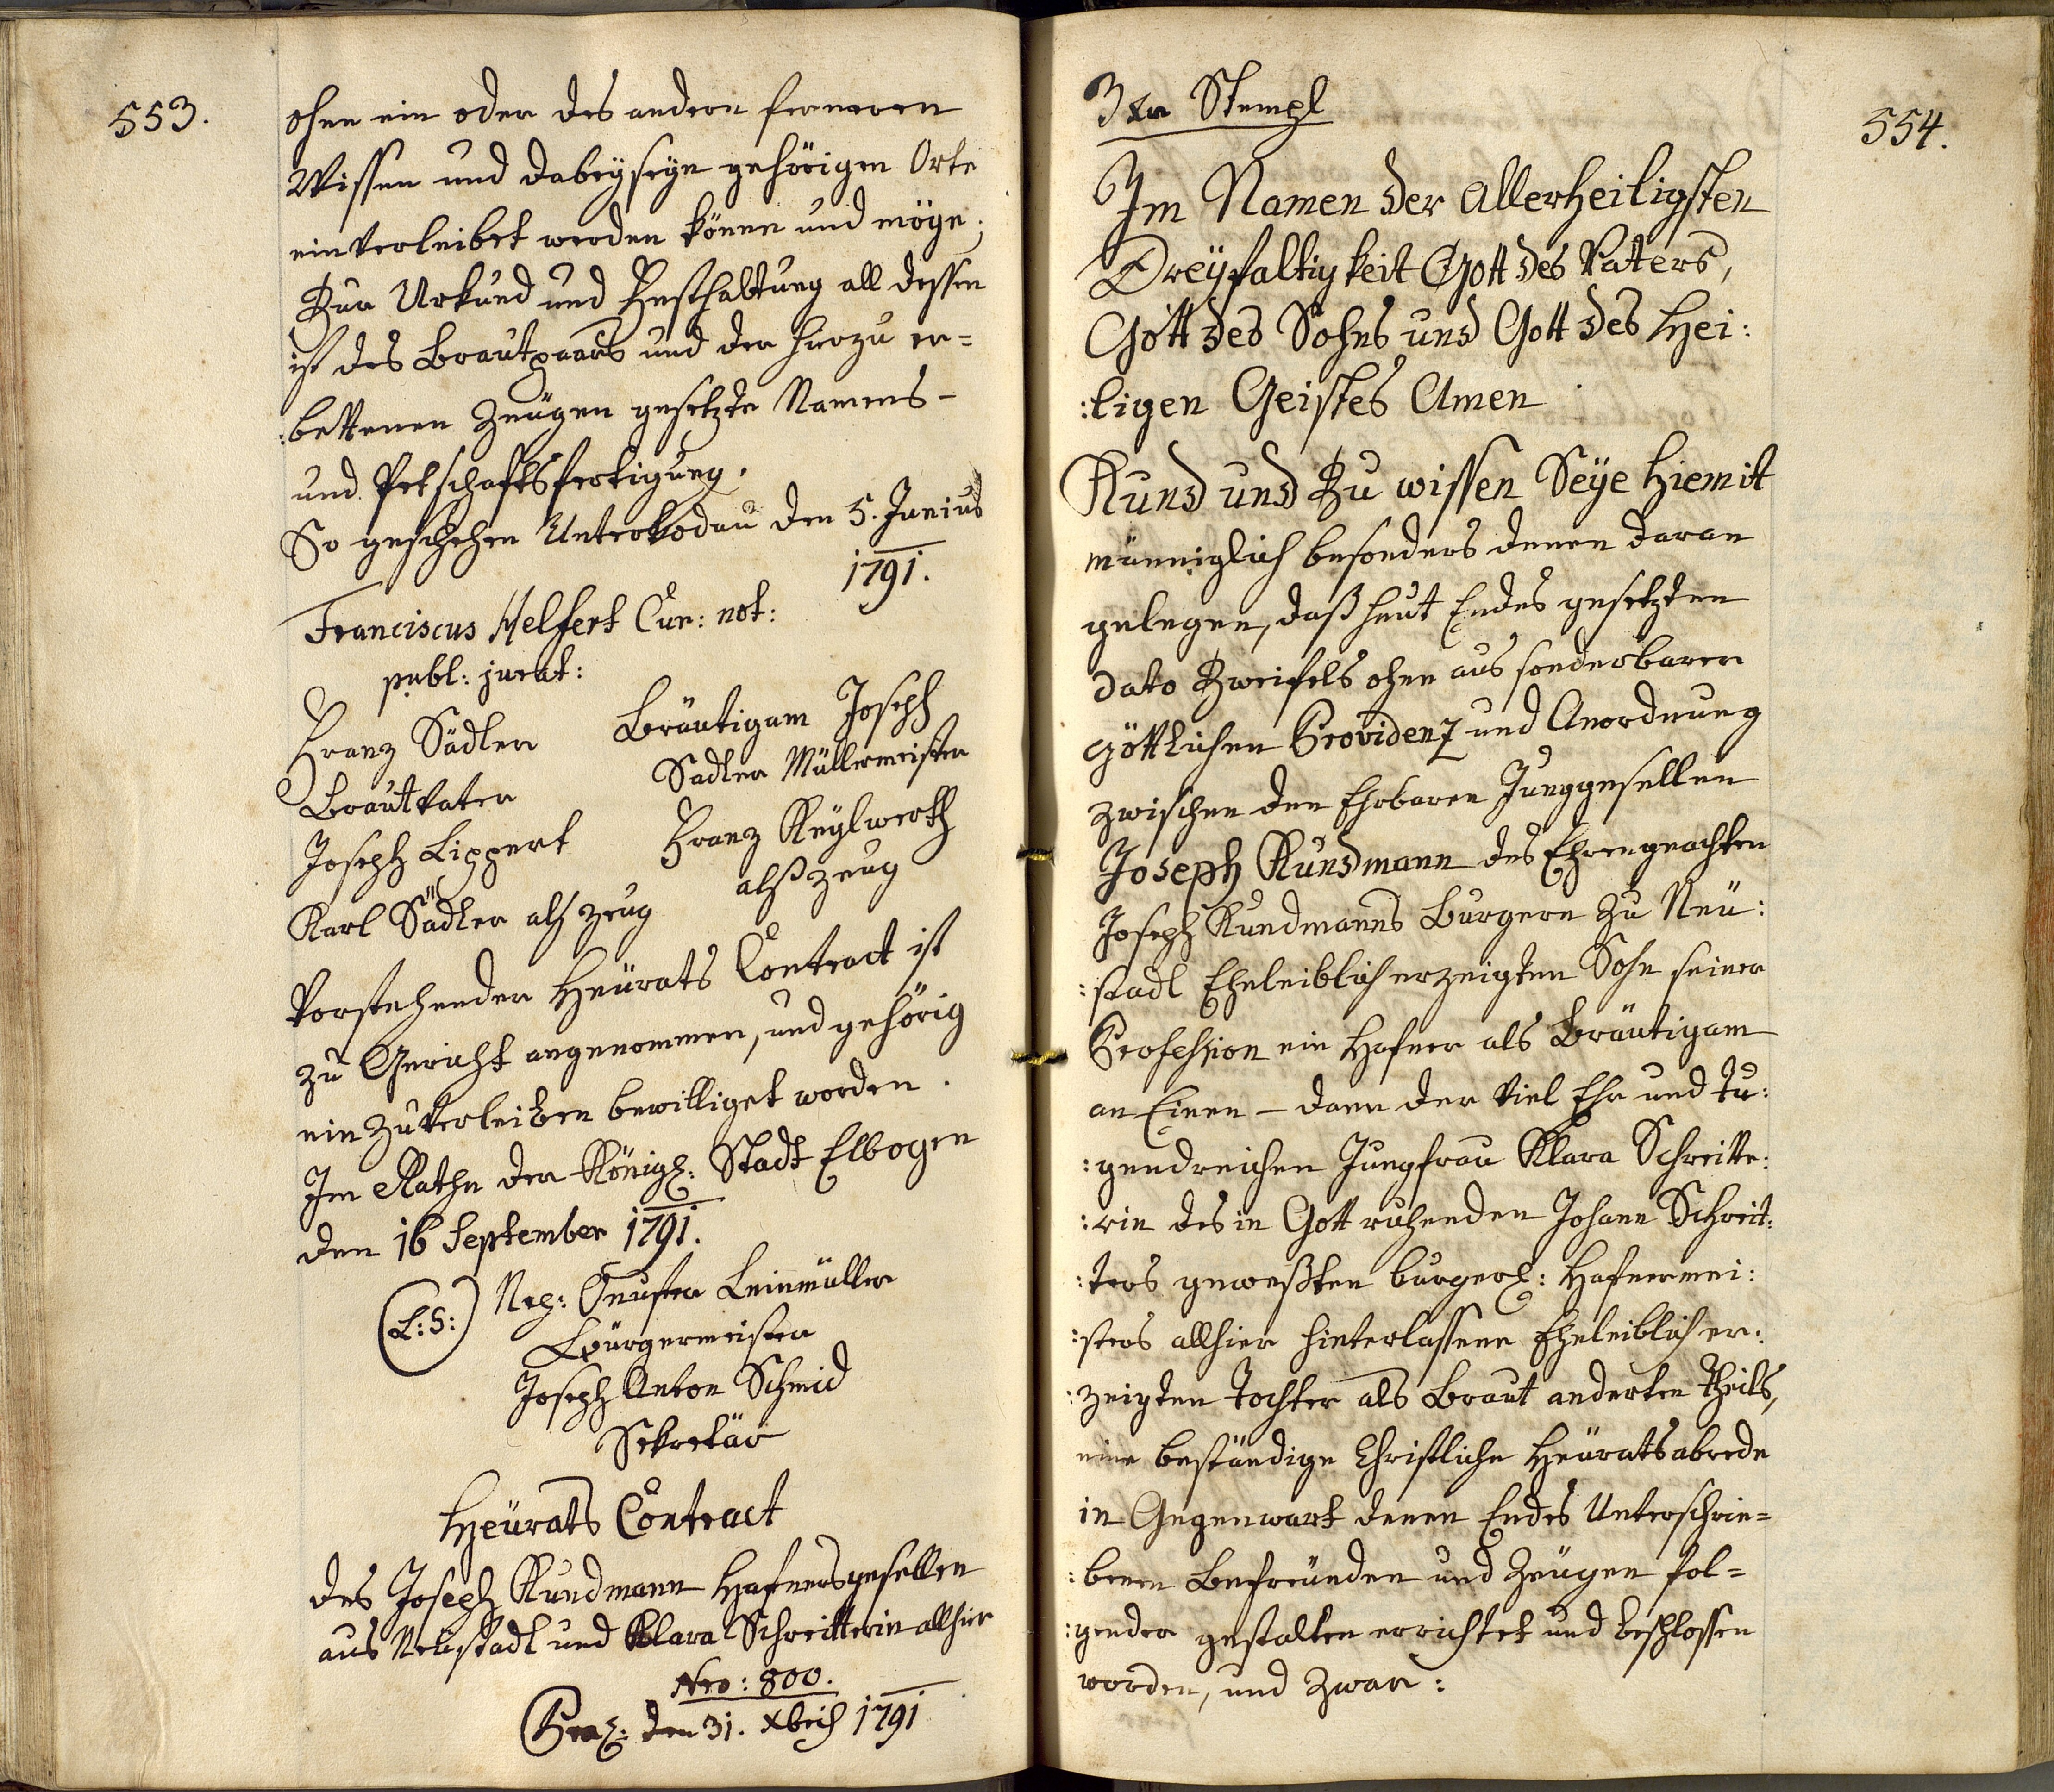 553.
ohne ein oder des andern ferneren
Wissen und dabeyseyn gehörigen Orts
einverleibet werden könne und möge;
Zur Urkund und Festhaltung all dessen
ist des Brautpaars und der hierzu er=
:bettenen Zeugen gesetzte Namens-
und Petschaftsfertigung.
So geschehen Unterkodau den 5. Junius
1791.
Franciscus Helfert Cur: not:
publ: jurat:
Franz Sädler
Bräutigam Joseph
Brautvater
Sadler Müllermeister
Joseph Lippert
Franz Keylwerth
Karl Sädler alß zeug
alß zeug
Vorstehender Heurats Contract ist
zu Gericht angenommen, und gehörig
ein zuverleiben bewilliget worden.
Im Rathe der Königl: Stadt Elbogen
den 16 September 1791.
(L:S:) Nep: Leinmüller
Bürgermeister
Joseph Anton Schmid
Sekretär
Heurats Contract
des Joseph Kundmann Hafnersgesellen
aus Neustadl und Klara Schreitterin allhier
Nro: 800.
Praes: den 31. Xbris 1791
554.
3 xr Stempl
Im Namen der Allerheiligsten
Dreyfaltigkeit Gott des Vaters,
Gott des Sohns und Gott des Hei:
:ligen Geistes Amen
Kund und Zu wissen Seye hiemit
männiglich besonders denen daran
gelegen, daß heut Endes gesetzten
dato Zweifels ohne aus sonderbarer
göttlichen Providenz und Anordnung
zwischen den Ehrbaren Junggesellen
Joseph Kundmann des Ehrengeachten
Joseph Kundmanns Burgern zu Neu:
:stadl Eheleiblich erzeigten Sohn seiner
Profession ein Hafner als Bräutigam
an Einen - dann der Viel Ehr und Tu:
:gendreichen Jungfrau Klara Schreitte:
:rin des in Gott ruhenden Johann Schreit:
:ters geweßten burgerl: Hafnermei:
:sters allhier hinterlassene Eheleiblich er:
:zeigten Tochter als Braut anderten Theils,
eine beständige Christliche Heuratsabrede
in Gegenwart denen Endes Unterschrie=
:benen Befreunden und Zeugen fol=
:gender gestalten errichtet und beschlossen
worden, und zwar: